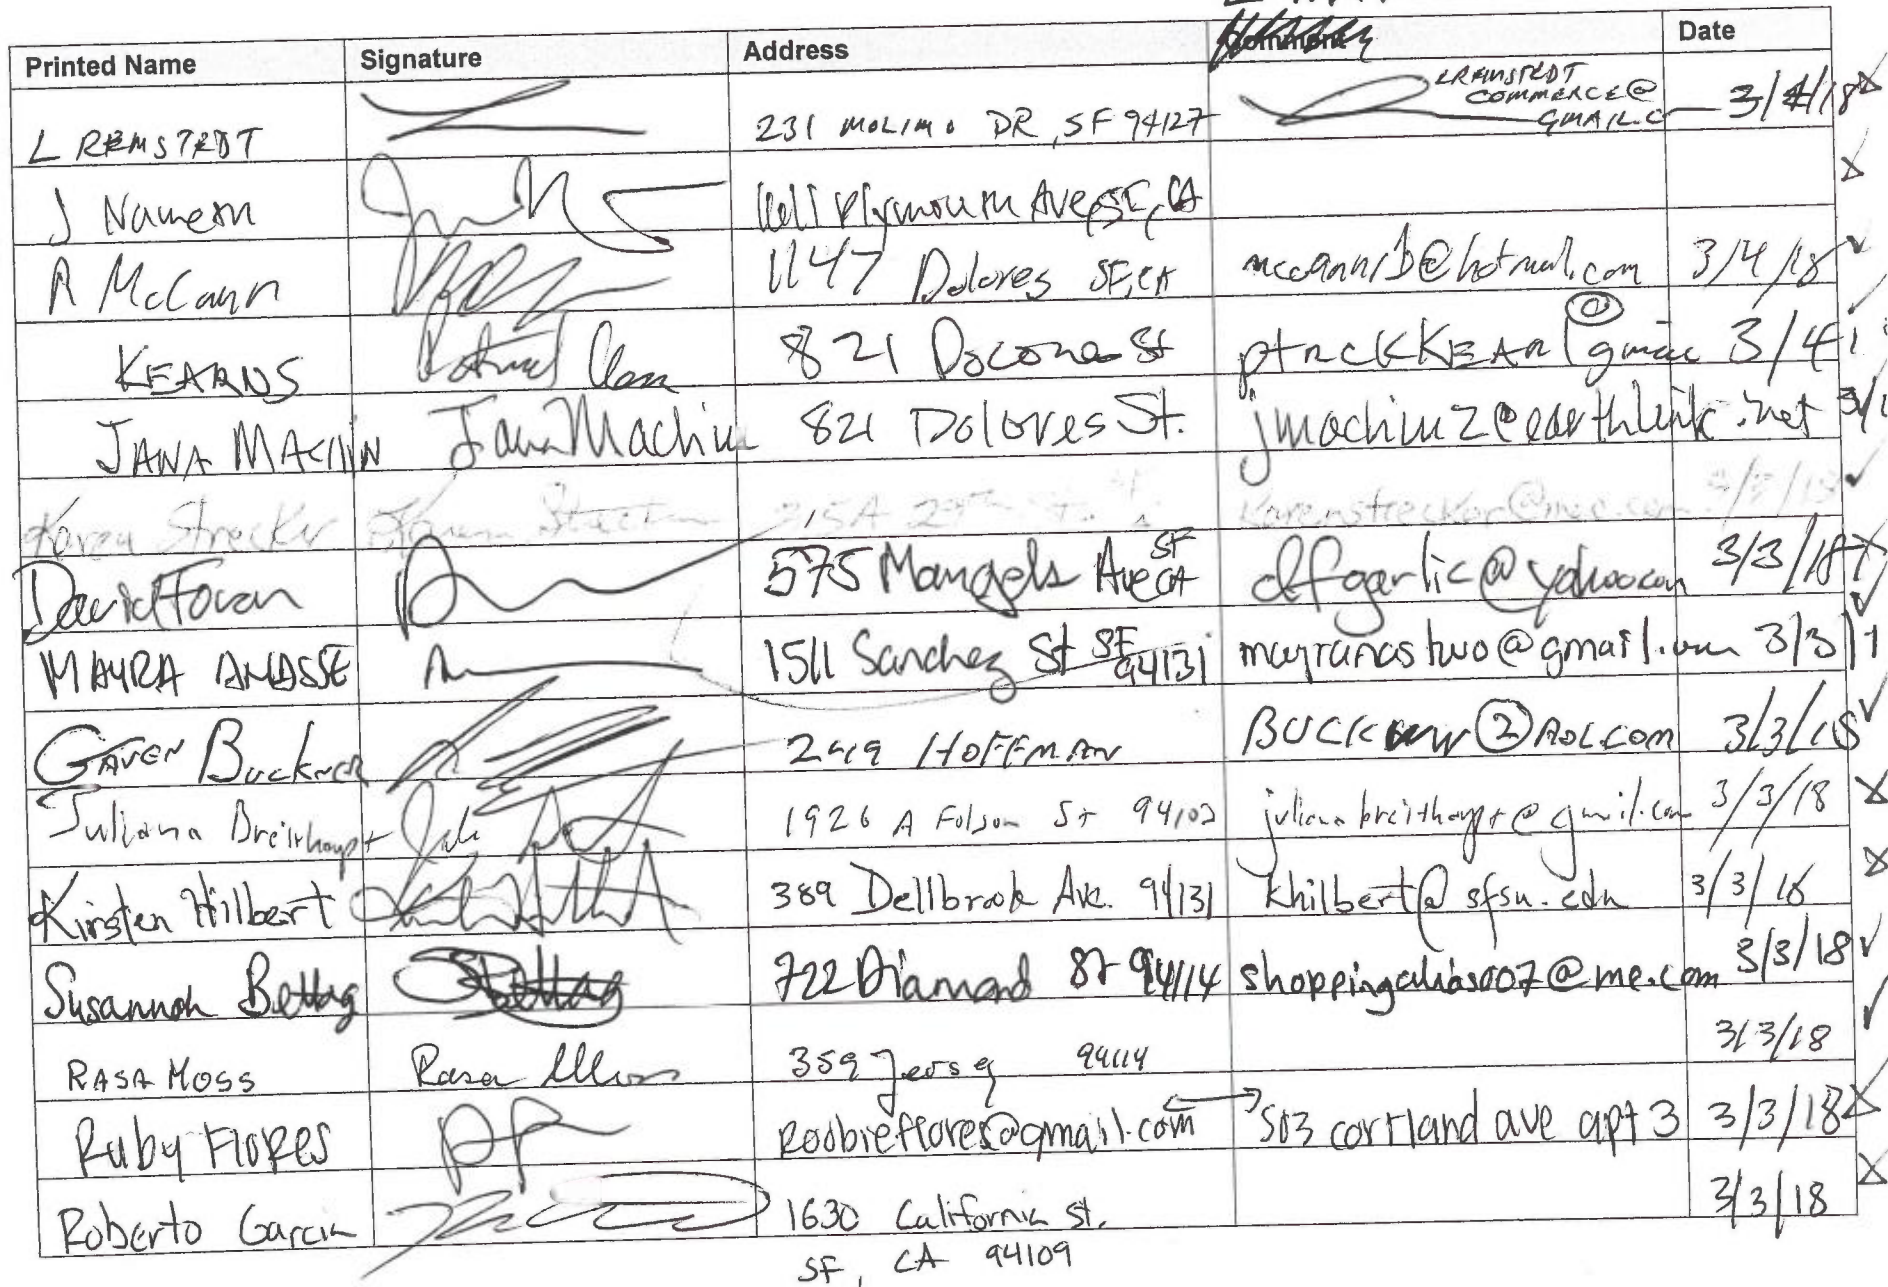 Printed Name Signature Address Date
L REMSTEDT 231 MOLIMO DR, SF 94127 LREMSTEDT COMMERCE@ GMAIL.C 3/4/18
J Plymouth Ave, SF, CA
R McCann 1147 Dolores SF, CA @hotmail.com 3/4/18
KEARNS 821 St ptrckKEAR@gmai 3/4/1
JANA MACHIN Jana Machin 821 Dolores St. jmachin2@earthlink.net 3/
Karen Strecker Karen 215A 29th St. karenstrecker@me.com
David 575 Mangels Ave SF CA dfgarlic@yahoo.com 3/3/18
MAYRA 1511 Sanchez St SF 94131 3/3/1
Buckner HOFFMAN @AOL.COM 3/3/18
Juliana Breithaupt 1926 A Folsom St 94103 juliana.breithaupt@gmail.com 3/3/18
Kirsten Hilbert 389 Dellbrook Ave. 94131 khilbert@sfsu.edu 3/3/18
Susannah Bettag SBettag 722 Diamond St 94114 shoppingalias007@me.com 3/3/18
RASA MOSS Rasa Moss 359 Jersey 94114 3/3/18
Ruby FLORES RF Roobieflores@gmail.com 503 cortland ave apt 3 3/3/18
Roberto Garcia 1630 California St. 3/3/18
SF, CA 94109